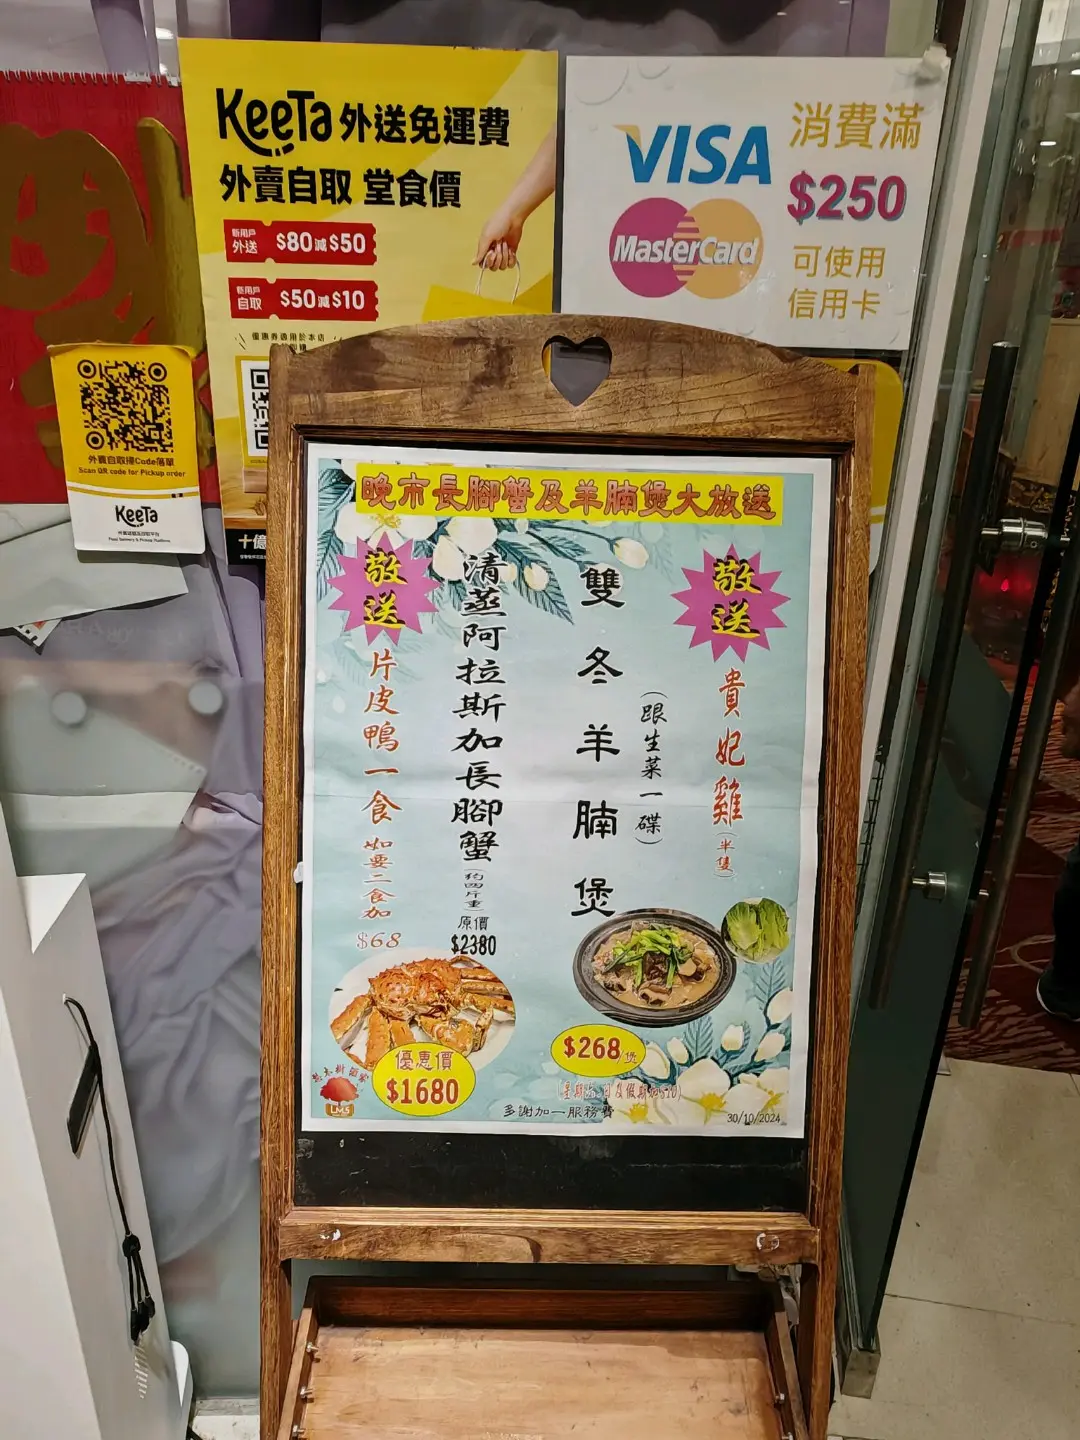 KeeTa 外送免運費
外賣自取 堂食價
新用戶
外送
$80減$50
新用戶
自取
$50減$10
優惠券適用於本店
VISA
MasterCard
消費滿
$250
可使用
信用卡
外賣自取掃Code落單
Scan QR code for Pickup order
KeeTa
Food Delivery & Pickup Platform
十億
晚市長腳蟹及羊腩煲大放送
敬送
貴妃雞(半隻)
雙冬羊腩煲
(跟生菜一碟)
$268/煲
清蒸阿拉斯加長腳蟹(約四斤重)
原價
$2380
優惠價
$1680
敬送
片皮鴨一食如要二食加
$68
LMS
多謝加一服務費
30/10/2024